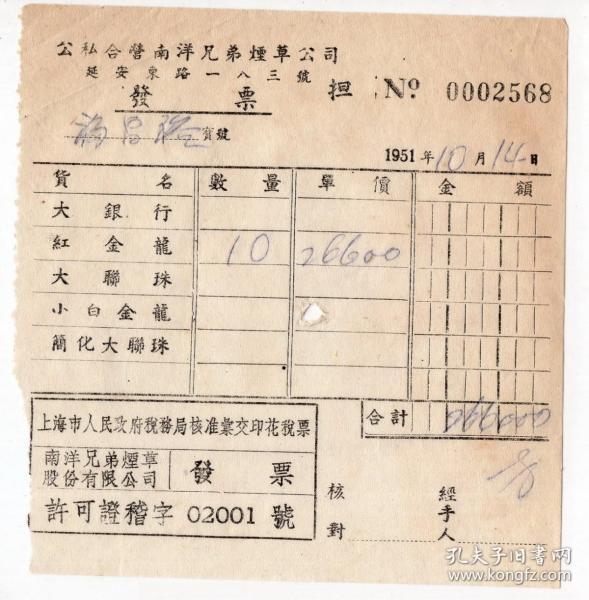 公私合營南洋兄弟煙草公司
延安東路一八三號
發 票 担 Nº 0002568
寶號
1951 年 10 月 14 日
貨 名 數 量 單 價 金 額
大 銀 行
紅 金 龍 10 26600
大 聯 珠
小白金龍
簡化大聯珠
合計 266000
上海市人民政府稅務局核准彙交印花稅票
南洋兄弟煙草股份有限公司 發 票
許可證稽字 02001 號
核對 經手人
孔夫子旧书网
www.kongfz.com